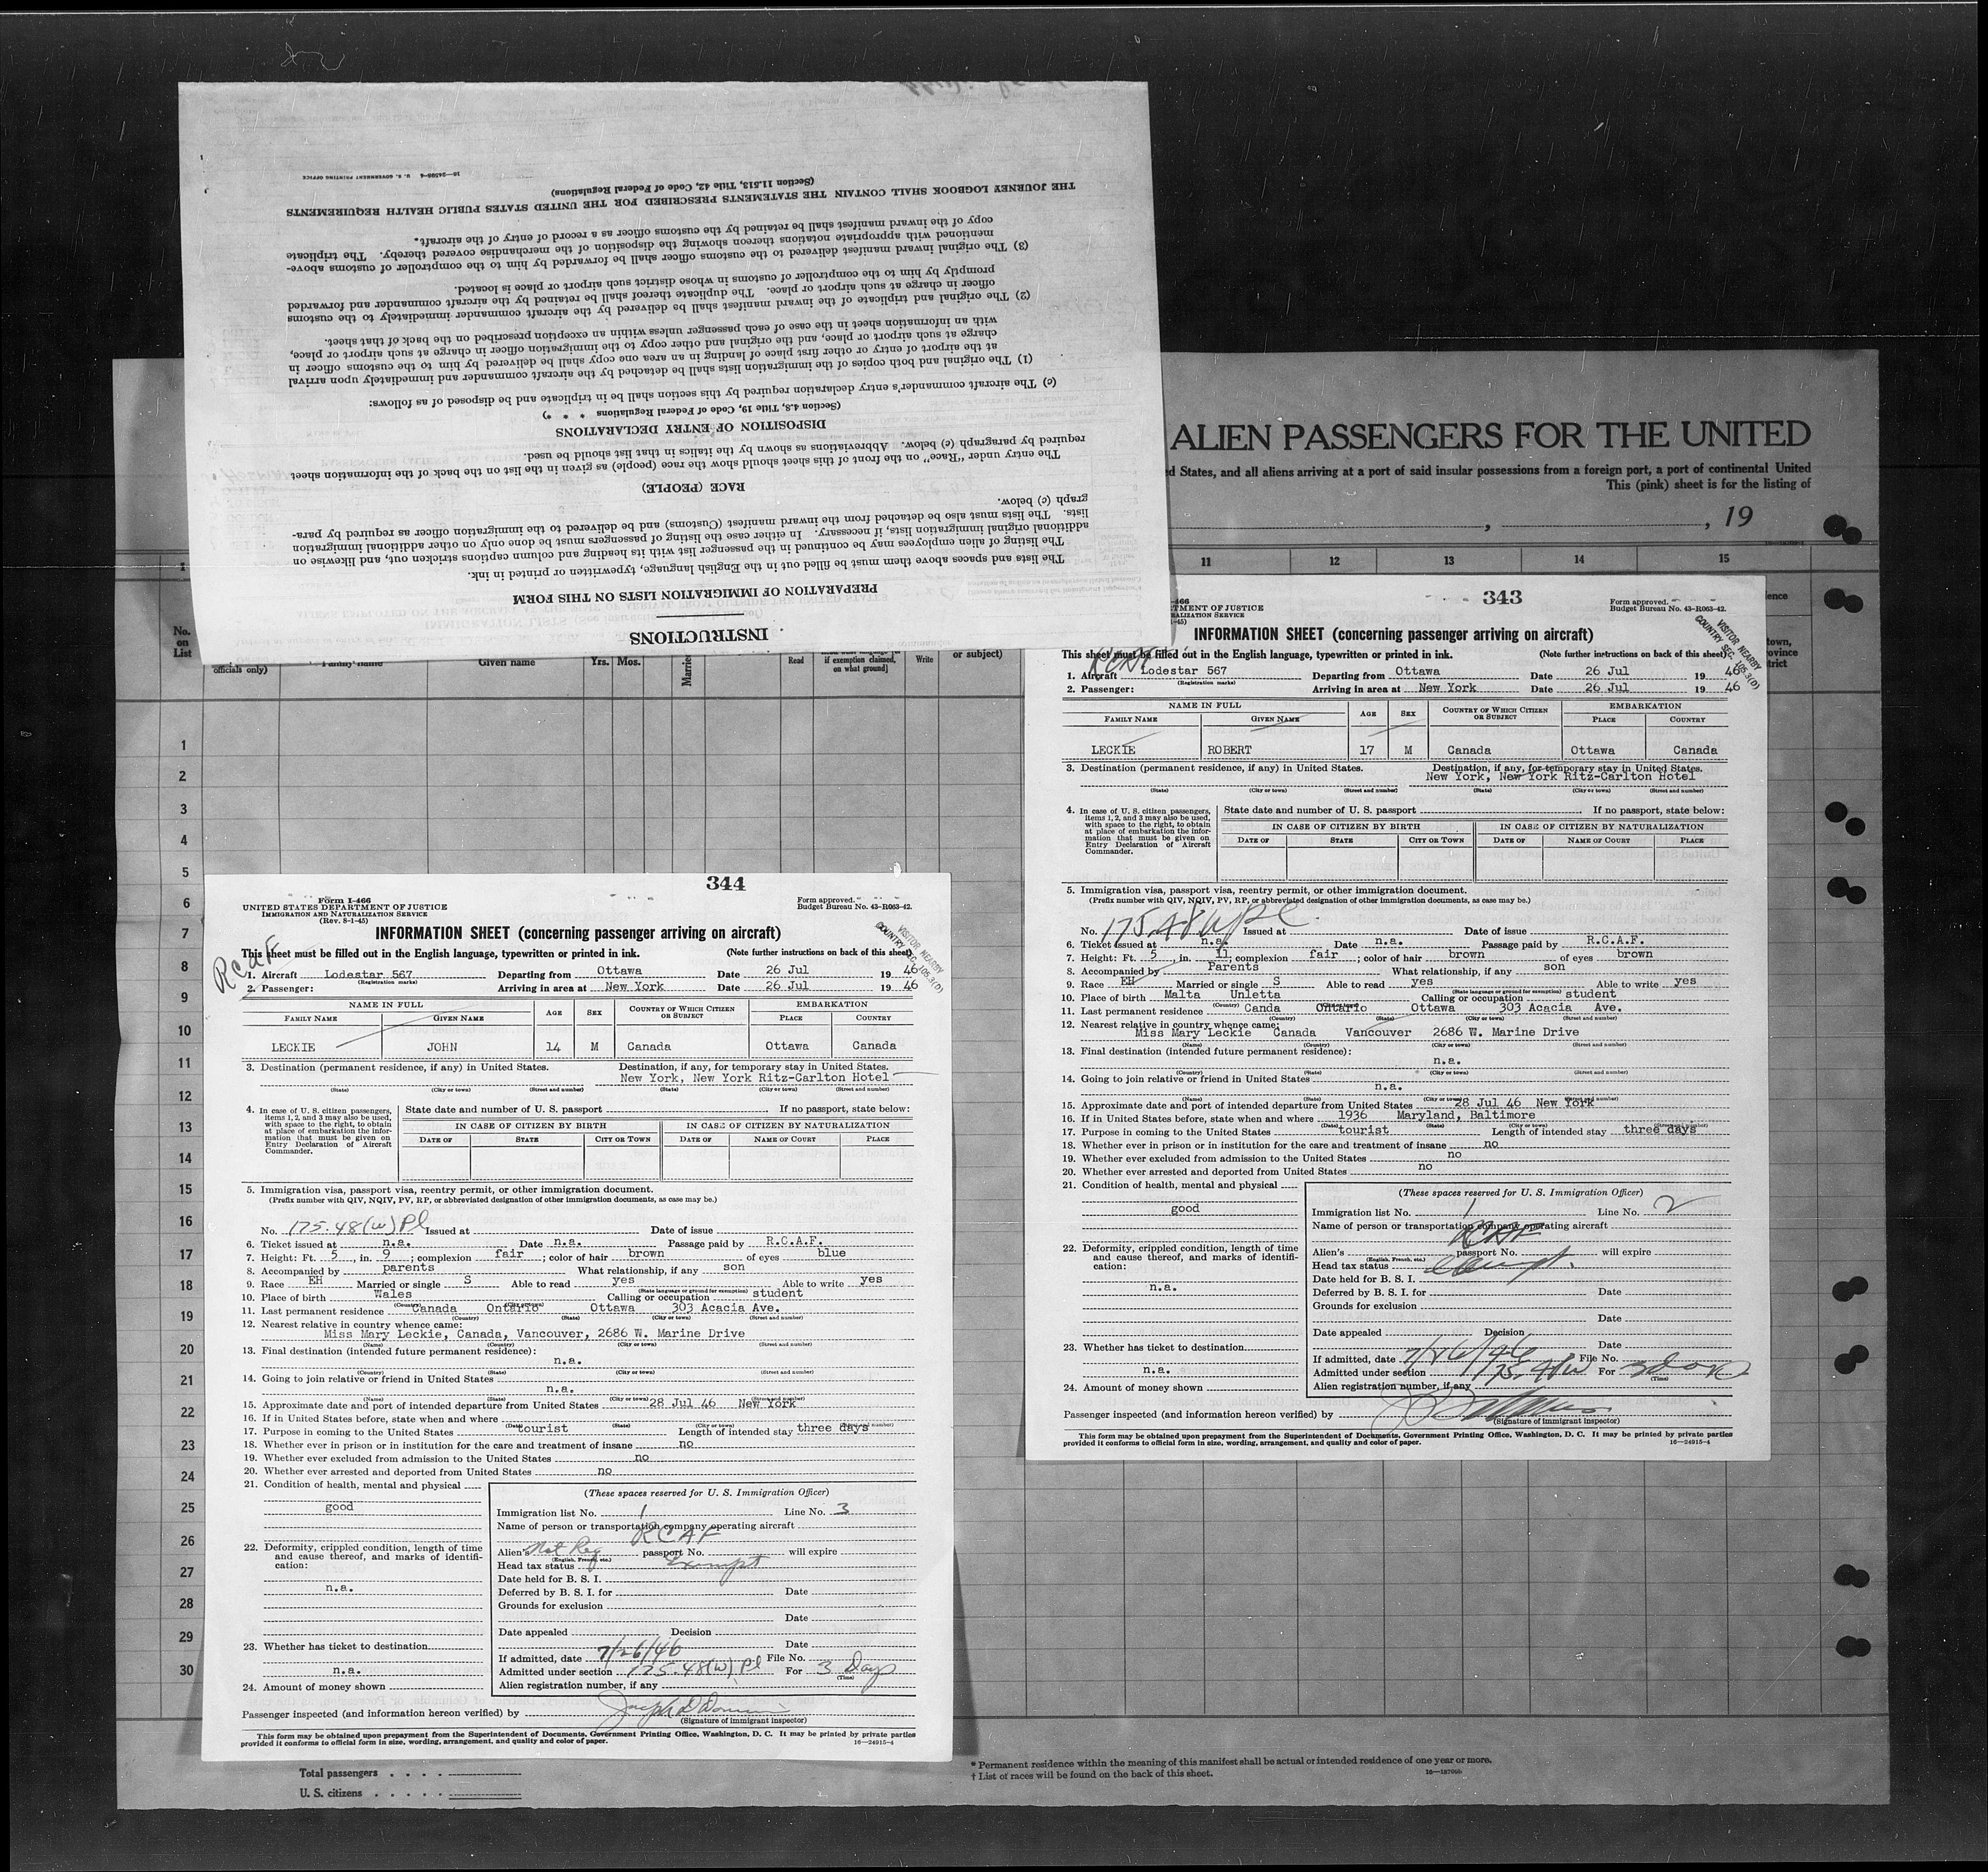 INSTRUCTIONS
PREPARATION OF IMMIGRATION LISTS ON THIS FORM
The lists and spaces above them must be filled out in the English language, typewritten or printed in ink.
The listing of alien employees may be continued in the passenger list with its heading and column captions stricken out, and likewise on
additional original immigration lists, if necessary. In either case the listing of passengers must be done only on other additional immigration
lists. The lists must also be detached from the inward manifest (Customs) and be delivered to the immigration officer as required by para-
graph (c) below.
RACE (PEOPLE)
The entry under "Race" on the front of this sheet should show the race (people) as given in the list on the back of the information sheet
required by paragraph (c) below. Abbreviations as shown by the italics in that list should be used.
DISPOSITION OF ENTRY DECLARATIONS
(Section 4.8, Title 19, Code of Federal Regulations * * *)
(c) The aircraft commander's entry declaration required by this section shall be in triplicate and be disposed of as follows:
(1) The original and both copies of the immigration lists shall be detached by the aircraft commander and immediately upon arrival
at the airport of entry or other first place of landing in an area one copy shall be delivered by him to the customs officer in
charge at such airport or place, and the original and other copy to the immigration officer in charge at such airport or place,
with an information sheet in the case of each passenger unless within an exception prescribed on the back of that sheet.
(2) The original and triplicate of the inward manifest shall be delivered by the aircraft commander immediately to the customs
officer in charge at such airport or place. The duplicate thereof shall be retained by the aircraft commander and forwarded
promptly by him to the comptroller of customs in whose district such airport or place is located.
(3) The original inward manifest delivered to the customs officer shall be forwarded by him to the comptroller of customs above-
mentioned with appropriate notations thereon showing the disposition of the merchandise covered thereby. The triplicate
copy of the inward manifest shall be retained by the customs officer as a record of entry of the aircraft.
THE JOURNEY LOGBOOK SHALL CONTAIN THE STATEMENTS PRESCRIBED FOR THE UNITED STATES PUBLIC HEALTH REQUIREMENTS
(Section 11.513, Title 42, Code of Federal Regulations)
U. S. GOVERNMENT PRINTING OFFICE
ALIEN PASSENGERS FOR THE UNITED
States, and all aliens arriving at a port of said insular possessions from a foreign port, a port of continental United
This (pink) sheet is for the listing of
, , 19
11 12 13 14 15
No. on List
officials only) Family name Given name Yrs. Mos. Married Read if exemption claimed, on what ground] Write or subject)
1
2
3
4
5
6
7
8
9
10
11
12
13
14
15
16
17
18
19
20
21
22
23
24
25
26
27
28
29
30
Total passengers . . . .
U. S. citizens . . . . .
* Permanent residence within the meaning of this manifest shall be actual or intended residence of one year or more.
† List of races will be found on the back of this sheet.
343
Form approved.
Budget Bureau No. 43-R063-42.
VISITOR NEARBY
COUNTRY
SEC. 105.3(D)
INFORMATION SHEET (concerning passenger arriving on aircraft)
This sheet must be filled out in the English language, typewritten or printed in ink. (Note further instructions on back of this sheet)
RCAF
1. Aircraft Lodestar 567 Departing from Ottawa Date 26 Jul 19 46
(Registration marks)
2. Passenger: Arriving in area at New York Date 26 Jul 19 46
NAME IN FULL AGE SEX COUNTRY OF WHICH CITIZEN OR SUBJECT EMBARKATION
FAMILY NAME GIVEN NAME PLACE COUNTRY
LECKIE ROBERT 17 M Canada Ottawa Canada
3. Destination (permanent residence, if any) in United States. Destination, if any, for temporary stay in United States.
New York, New York Ritz-Carlton Hotel
(State) (City or town) (Street and number) (State) (City or town) (Street and number)
4. In case of U. S. citizen passengers, items 1, 2, and 3 may also be used, with space to the right, to obtain at place of embarkation the information that must be given on Entry Declaration of Aircraft Commander.
State date and number of U. S. passport If no passport, state below:
IN CASE OF CITIZEN BY BIRTH IN CASE OF CITIZEN BY NATURALIZATION
DATE OF STATE CITY OR TOWN DATE OF NAME OF COURT PLACE
5. Immigration visa, passport visa, reentry permit, or other immigration document.
(Prefix number with QIV, NQIV, PV, RP, or abbreviated designation of other immigration documents, as case may be.)
No. 175.48 Issued at Date of issue
6. Ticket issued at n.a. Date n.a. Passage paid by R.C.A.F.
7. Height: Ft. 5, in. 11; complexion fair; color of hair brown of eyes brown
8. Accompanied by Parents What relationship, if any son
9. Race EH Married or single S Able to read yes Able to write yes
(State language or ground for exemption)
10. Place of birth Malta Unletta Calling or occupation student
11. Last permanent residence Canda Ontario Ottawa 303 Acacia Ave.
12. Nearest relative in country whence came:
Miss Mary Leckie Canada Vancouver 2686 W. Marine Drive
13. Final destination (intended future permanent residence):
n.a.
14. Going to join relative or friend in United States
n.a.
15. Approximate date and port of intended departure from United States 28 Jul 46 New York
16. If in United States before, state when and where 1936 Maryland, Baltimore
17. Purpose in coming to the United States tourist Length of intended stay three days
18. Whether ever in prison or in institution for the care and treatment of insane no
19. Whether ever excluded from admission to the United States no
20. Whether ever arrested and deported from United States no
21. Condition of health, mental and physical
good
22. Deformity, crippled condition, length of time and cause thereof, and marks of identification:
n.a.
23. Whether has ticket to destination
n.a.
24. Amount of money shown
(These spaces reserved for U. S. Immigration Officer)
Immigration list No. 1 Line No. 2
Name of person or transportation company operating aircraft
RCAF
Alien's passport No. will expire
(English, French, etc.)
Head tax status Exempt.
Date held for B. S. I.
Deferred by B. S. I. for Date
Grounds for exclusion
Date
Date appealed Decision
Date
If admitted, date 7/26/46 File No.
Admitted under section 175.48 For 3 days
(Time)
Alien registration number, if any
Passenger inspected (and information hereon verified) by
(Signature of immigrant inspector)
This form may be obtained upon prepayment from the Superintendent of Documents, Government Printing Office, Washington, D. C. It may be printed by private parties
provided it conforms to official form in size, wording, arrangement, and quality and color of paper. 16—24915-4
344
Form I-466
UNITED STATES DEPARTMENT OF JUSTICE
IMMIGRATION AND NATURALIZATION SERVICE
(Rev. 8-1-45)
Form approved.
Budget Bureau No. 43-R063-42.
VISITOR NEARBY
COUNTRY
SEC. 105.3(D)
INFORMATION SHEET (concerning passenger arriving on aircraft)
This sheet must be filled out in the English language, typewritten or printed in ink. (Note further instructions on back of this sheet)
RCAF
1. Aircraft Lodestar 567 Departing from Ottawa Date 26 Jul 19 46
(Registration marks)
2. Passenger: Arriving in area at New York Date 26 Jul 19 46
NAME IN FULL AGE SEX COUNTRY OF WHICH CITIZEN OR SUBJECT EMBARKATION
FAMILY NAME GIVEN NAME PLACE COUNTRY
LECKIE JOHN 14 M Canada Ottawa Canada
3. Destination (permanent residence, if any) in United States. Destination, if any, for temporary stay in United States.
New York, New York Ritz-Carlton Hotel
(State) (City or town) (Street and number) (State) (City or town) (Street and number)
4. In case of U. S. citizen passengers, items 1, 2, and 3 may also be used, with space to the right, to obtain at place of embarkation the information that must be given on Entry Declaration of Aircraft Commander.
State date and number of U. S. passport If no passport, state below:
IN CASE OF CITIZEN BY BIRTH IN CASE OF CITIZEN BY NATURALIZATION
DATE OF STATE CITY OR TOWN DATE OF NAME OF COURT PLACE
5. Immigration visa, passport visa, reentry permit, or other immigration document.
(Prefix number with QIV, NQIV, PV, RP, or abbreviated designation of other immigration documents, as case may be.)
No. 175.48(w) Pl Issued at Date of issue
6. Ticket issued at n.a. Date n.a. Passage paid by R.C.A.F.
7. Height: Ft. 5, in. 9; complexion fair; color of hair brown of eyes blue
8. Accompanied by parents What relationship, if any son
9. Race EH Married or single S Able to read yes Able to write yes
(State language or ground for exemption)
10. Place of birth Wales Calling or occupation student
11. Last permanent residence Canada Ontario Ottawa 303 Acacia Ave.
12. Nearest relative in country whence came:
Miss Mary Leckie, Canada, Vancouver, 2686 W. Marine Drive
13. Final destination (intended future permanent residence):
n.a.
14. Going to join relative or friend in United States
n.a.
15. Approximate date and port of intended departure from United States 28 Jul 46 New York
16. If in United States before, state when and where
17. Purpose in coming to the United States tourist Length of intended stay three days
18. Whether ever in prison or in institution for the care and treatment of insane no
19. Whether ever excluded from admission to the United States no
20. Whether ever arrested and deported from United States no
21. Condition of health, mental and physical
good
22. Deformity, crippled condition, length of time and cause thereof, and marks of identification:
n.a.
23. Whether has ticket to destination
n.a.
24. Amount of money shown
(These spaces reserved for U. S. Immigration Officer)
Immigration list No. 1 Line No. 3
Name of person or transportation company operating aircraft
RCAF
Alien's Not Req passport No. will expire
(English, French, etc.)
Head tax status Exempt
Date held for B. S. I.
Deferred by B. S. I. for Date
Grounds for exclusion
Date
Date appealed Decision
Date
If admitted, date 7/26/46 File No.
Admitted under section 175.48(w) Pl For 3 Days
(Time)
Alien registration number, if any
Passenger inspected (and information hereon verified) by Joseph D
(Signature of immigrant inspector)
This form may be obtained upon prepayment from the Superintendent of Documents, Government Printing Office, Washington, D. C. It may be printed by private parties
provided it conforms to official form in size, wording, arrangement, and quality and color of paper. 16—24915-4